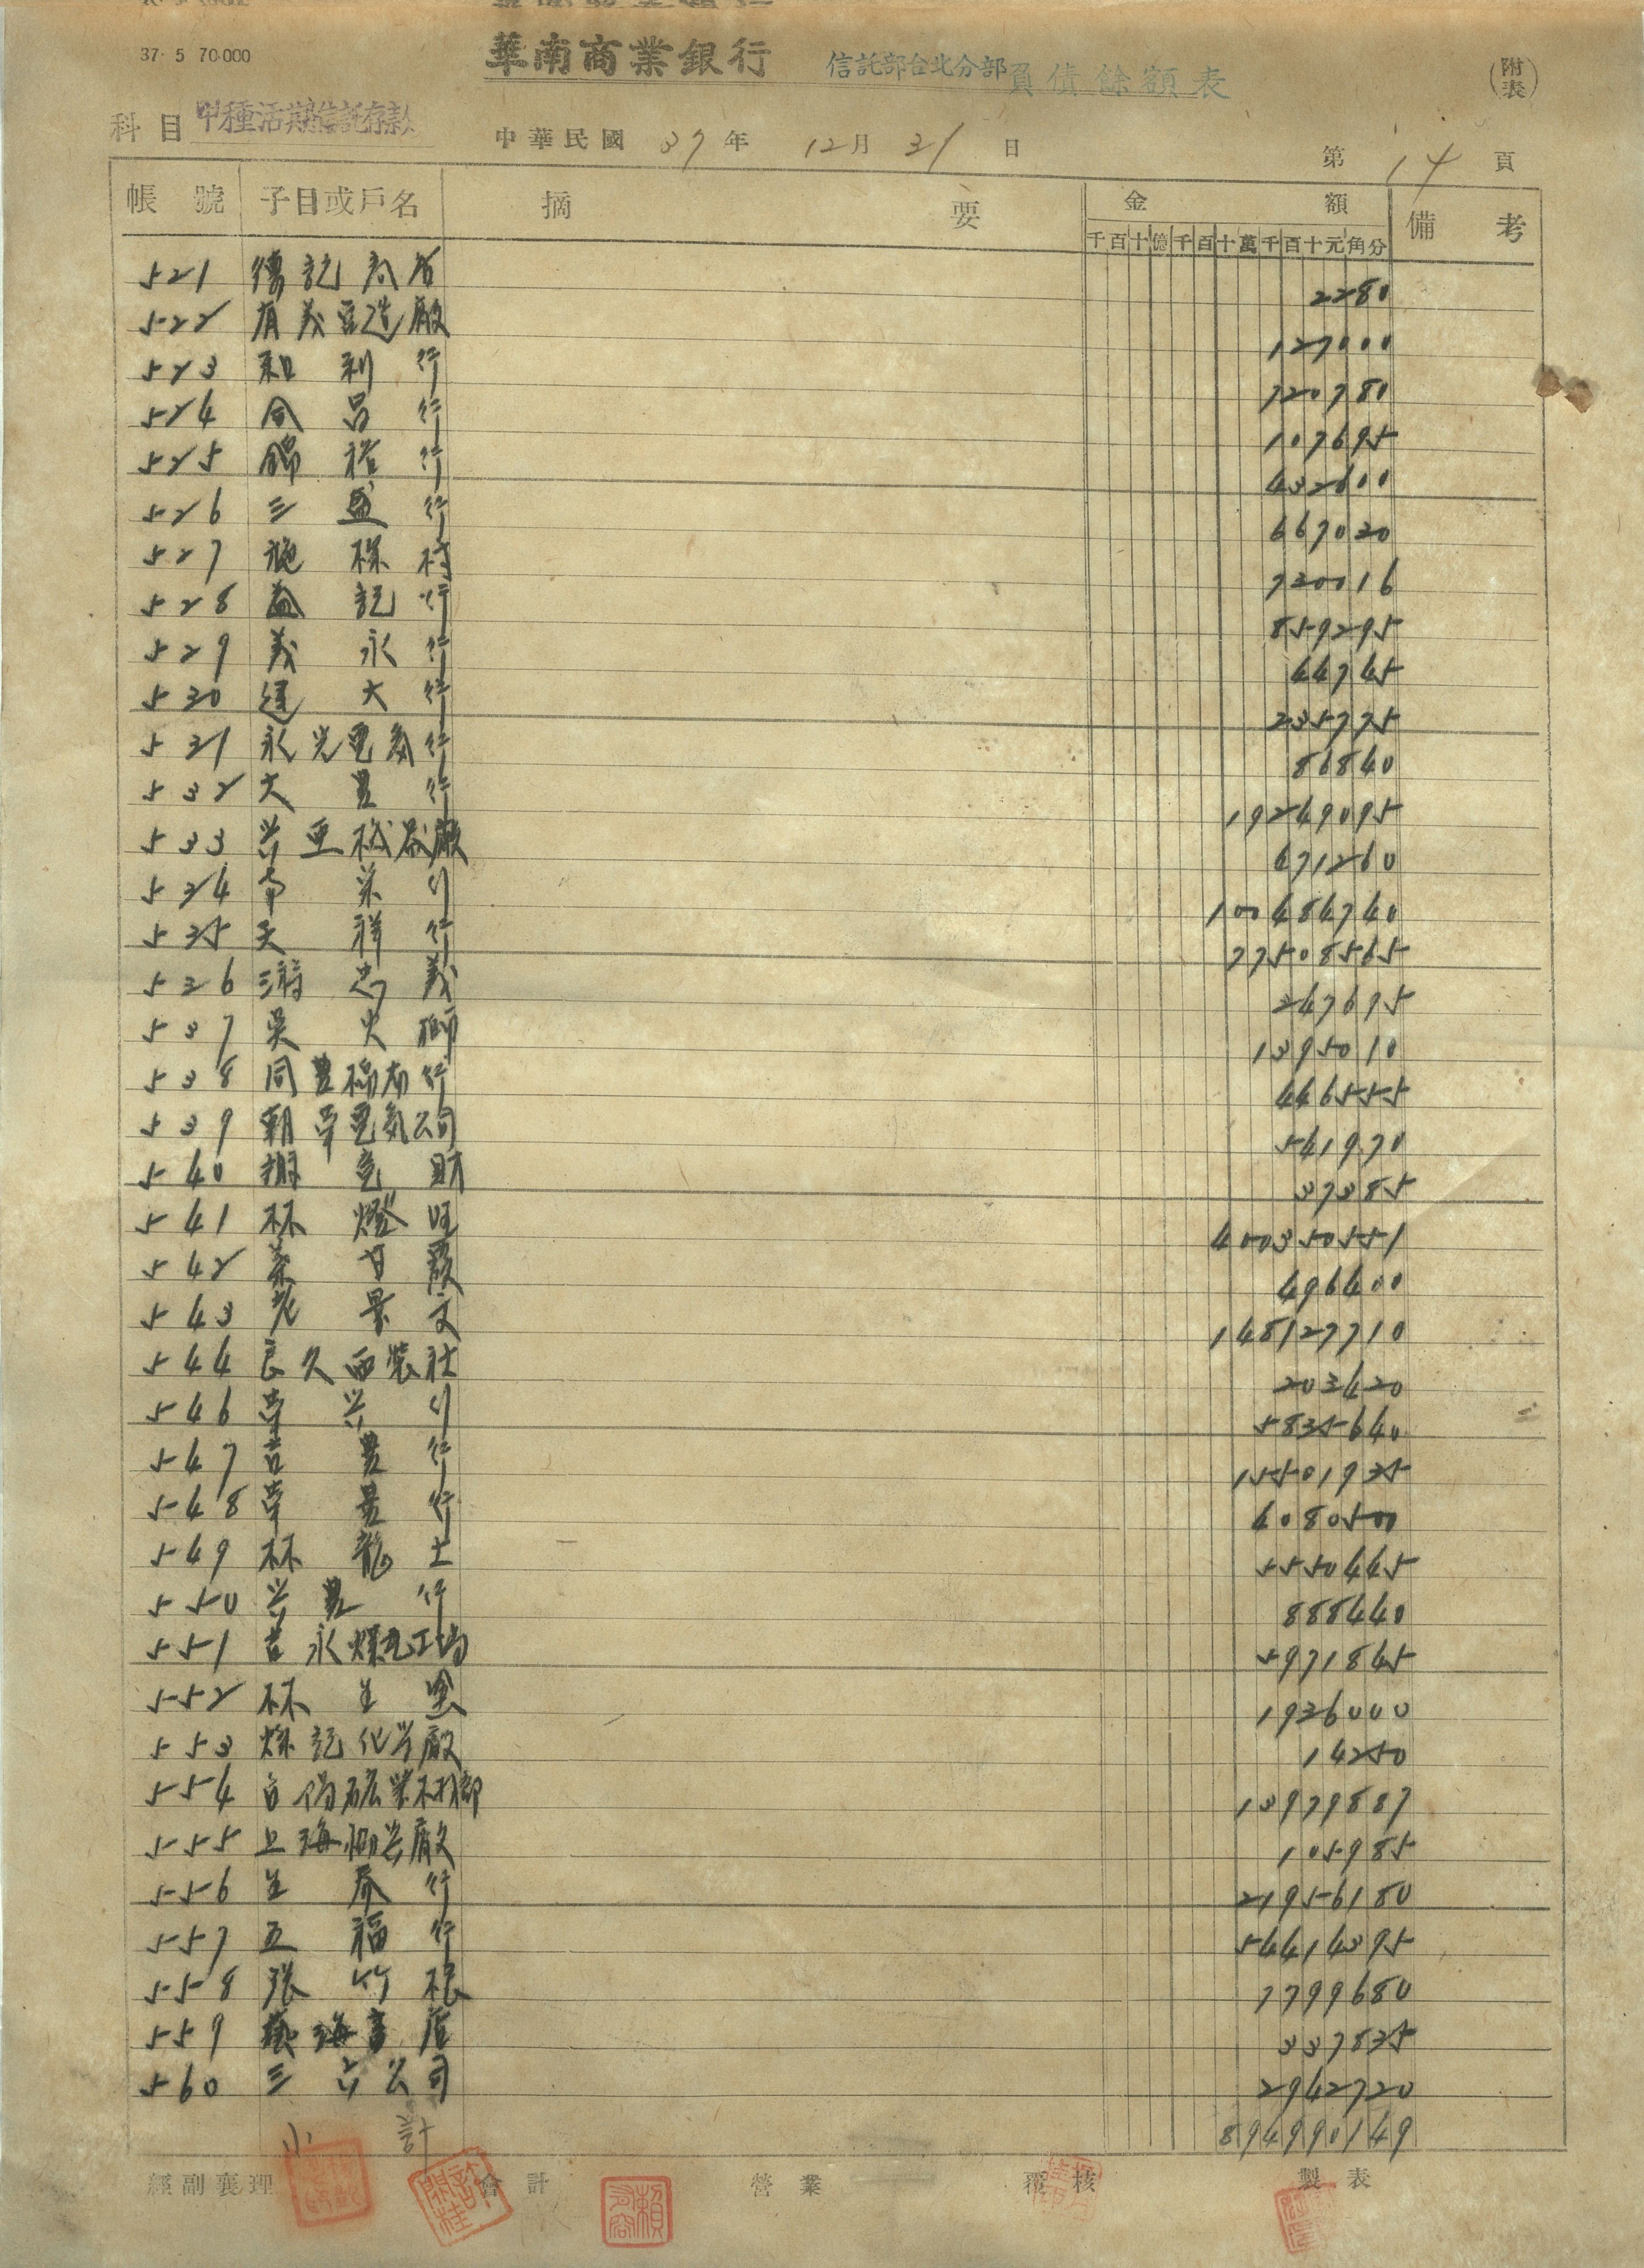 37· 5 70·000
華南商業銀行 信託部台北分部負債餘額表 (附表)
科目 甲種活期信託存款 中華民國 37 年 12 月 31 日 第 14 頁
帳號 子目或戶名 摘要 金額 備考
千百十億千百十萬千百十元角分
521 德記商店 2280
522 有義豆造廠 127000
523 和利行 720780
524 合昌行 107695
525 錦裕行 432600
526 三盛行 667020
527 施保村 720016
528 益記行 859295
529 義永行 44745
530 建大行 235775
531 永光電氣行 86840
532 大豊行 19249095
533 兴亜机器廠 671260
534 南榮行 100484740
535 天祥行 77508565
536 游忠義 247695
537 吳火獅 1395010
538 同豊棉布行 446555
539 朝華電氣公司 541970
540 謝 財 37385
541 林燈旺 400350551
542 葉甘霖 496400
543 景文 148127710
544 良久西裝社 203420
546 華兴行 5835640
547 吉豊行 15501935
548 華昌行 4080500
549 林龍士 5550445
550 兴豊行 888440
551 吉永煤礼工場 5971845
552 林生 1926000
553 炳記化学廠 14250
554 台陽砿業材部 13979887
555 上海 廠 105985
556 生春行 21956180
557 五福行 54414395
558 張竹根 7799680
559 藝海書店 337835
560 三六公司 2942720
小計 894990149
經副襄理 會計 營業 覆核 製表